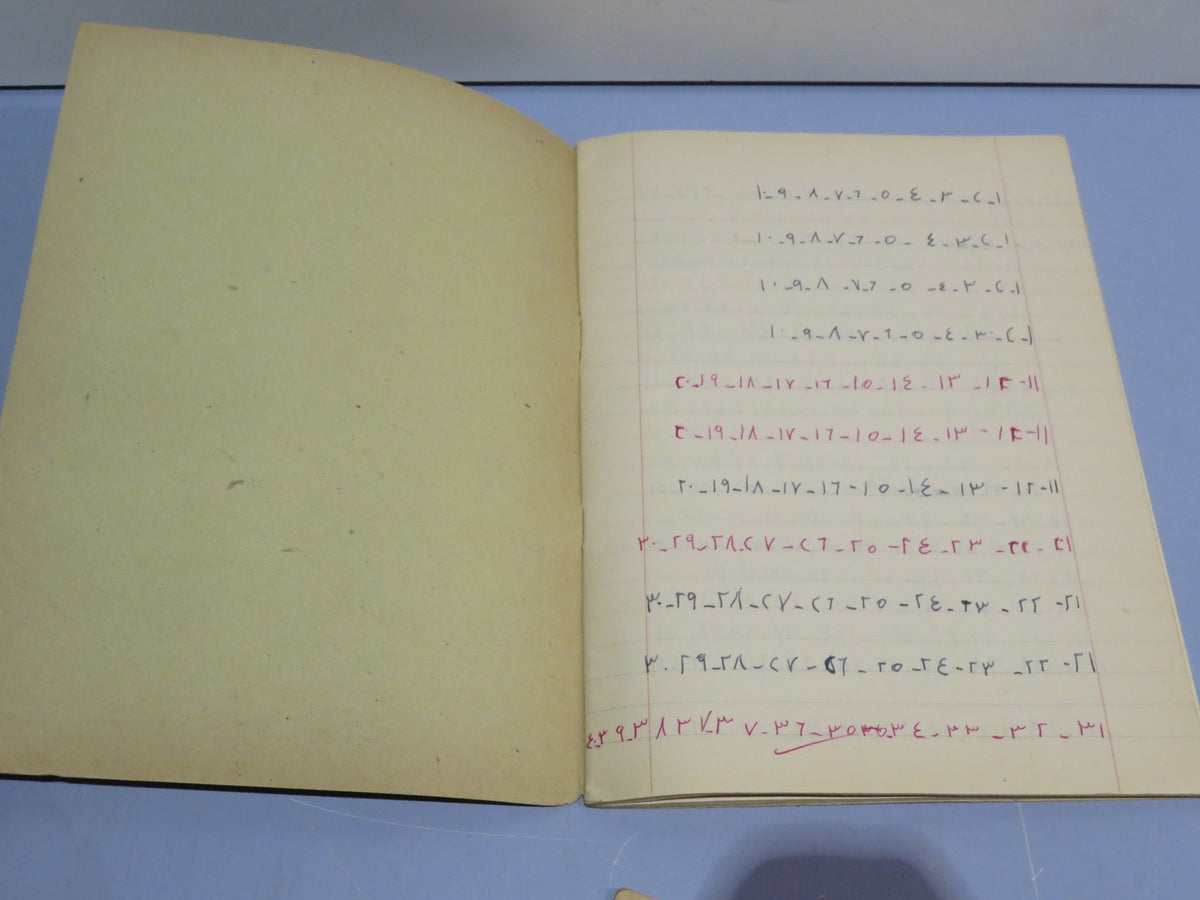 ١-٢-٣-٤-٥-٦-٧-٨-٩-١٠
١-٢-٣-٤-٥-٦-٧-٨-٩-١٠
١-٢-٣-٤-٥-٦-٧-٨-٩-١٠
١-٢-٣-٤-٥-٦-٧-٨-٩-١٠
١١-١٢-١٣-١٤-١٥-١٦-١٧-١٨-١٩-٢٠
١١-١٢-١٣-١٤-١٥-١٦-١٧-١٨-١٩-٢٠
١١-١٢-١٣-١٤-١٥-١٦-١٧-١٨-١٩-٢٠
٢١-٢٢-٢٣-٢٤-٢٥-٢٦-٢٧-٢٨-٢٩-٣٠
٢١-٢٢-٢٣-٢٤-٢٥-٢٦-٢٧-٢٨-٢٩-٣٠
٢١-٢٢-٢٣-٢٤-٢٥-٢٦-٢٧-٢٨-٢٩-٣٠
٣١-٣٢-٣٣-٣٤-٣٥-٣٦-٣٧-٣٧-٣٨-٣٩-٤٠